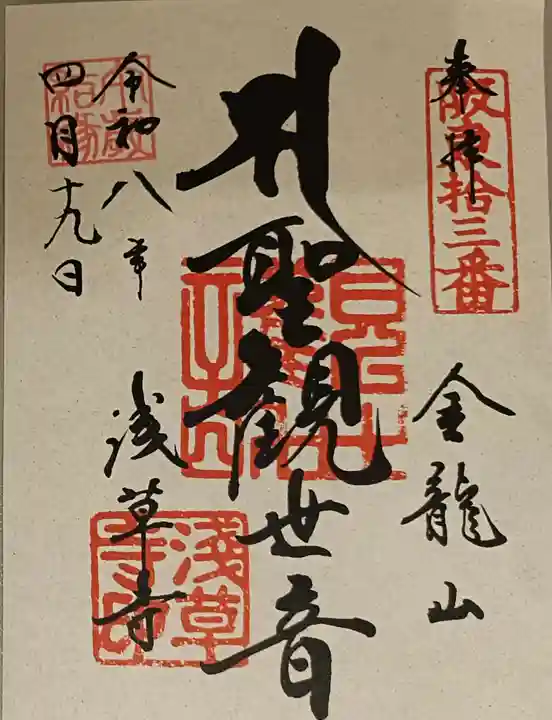 奉拝
坂東拾三番
金龍山
聖観世音
令和八年
四月十九日
浅草寺
浅草寺印